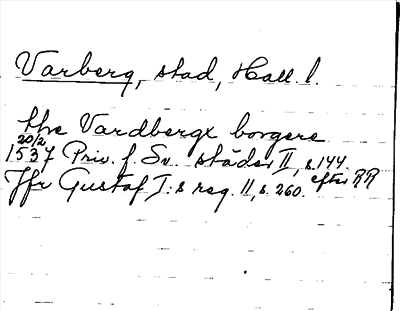 Varberg, stad, Hall. l.
the Vardbergx borgere
20/2
1537 Priv. f. Sv. städer II, s. 144. efter RR
Jfr Gustaf I:s reg. 11, s. 260.